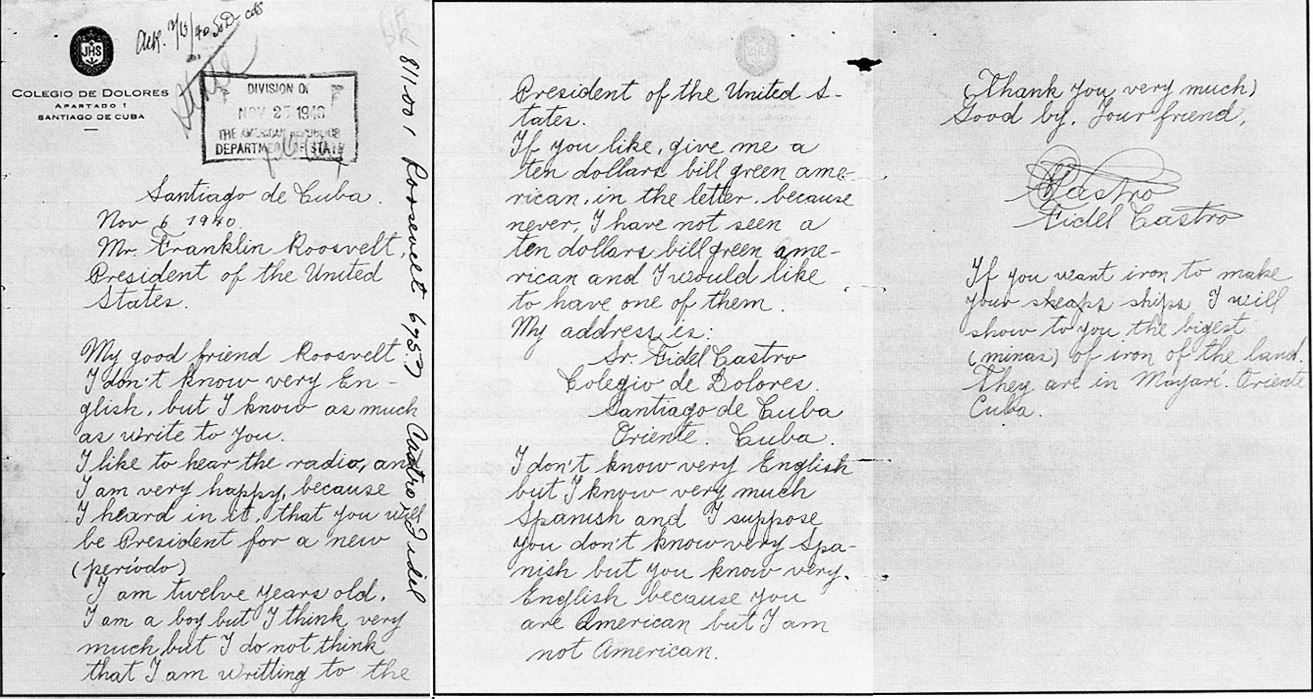 JHS
COLEGIO DE DOLORES
APARTADO 1
SANTIAGO DE CUBA
DIVISION OF
NOV 27 1940
THE AMERICAN REPUBLICS
DEPARTMENT OF STATE
811.001 Roosevelt
Castro, Fidel
Santiago de Cuba.
Nov 6 1940
Mr. Franklin Roosvelt,
President of the United
States.
My good friend Roosvelt
I don't know very En-
glish, but I know as much
as write to you.
I like to hear the radio, and
I am very happy, because
I heard in it, that you will
be President for a new
(periodo)
I am twelve years old.
I am a boy but I think very
much but I do not think
that I am writting to the
President of the United S-
tates.
If you like, give me a
ten dollars bill green ame-
rican, in the letter, because
never, I have not seen a
ten dollars bill green ame-
rican and I would like
to have one of them.
My address is:
Sr. Fidel Castro
Colegio de Dolores.
Santiago de Cuba
Oriente. Cuba.
I don't know very English
but I know very much
Spanish and I suppose
you don't know very Spa-
nish but you know very
English because you
are American but I am
not American.
(Thank you very much)
Good by. Your friend,
Castro
Fidel Castro
If you want iron to make
your sheaps ships I will
show to you the bigest
(minas) of iron of the land.
They are in Mayarí. Oriente
Cuba.